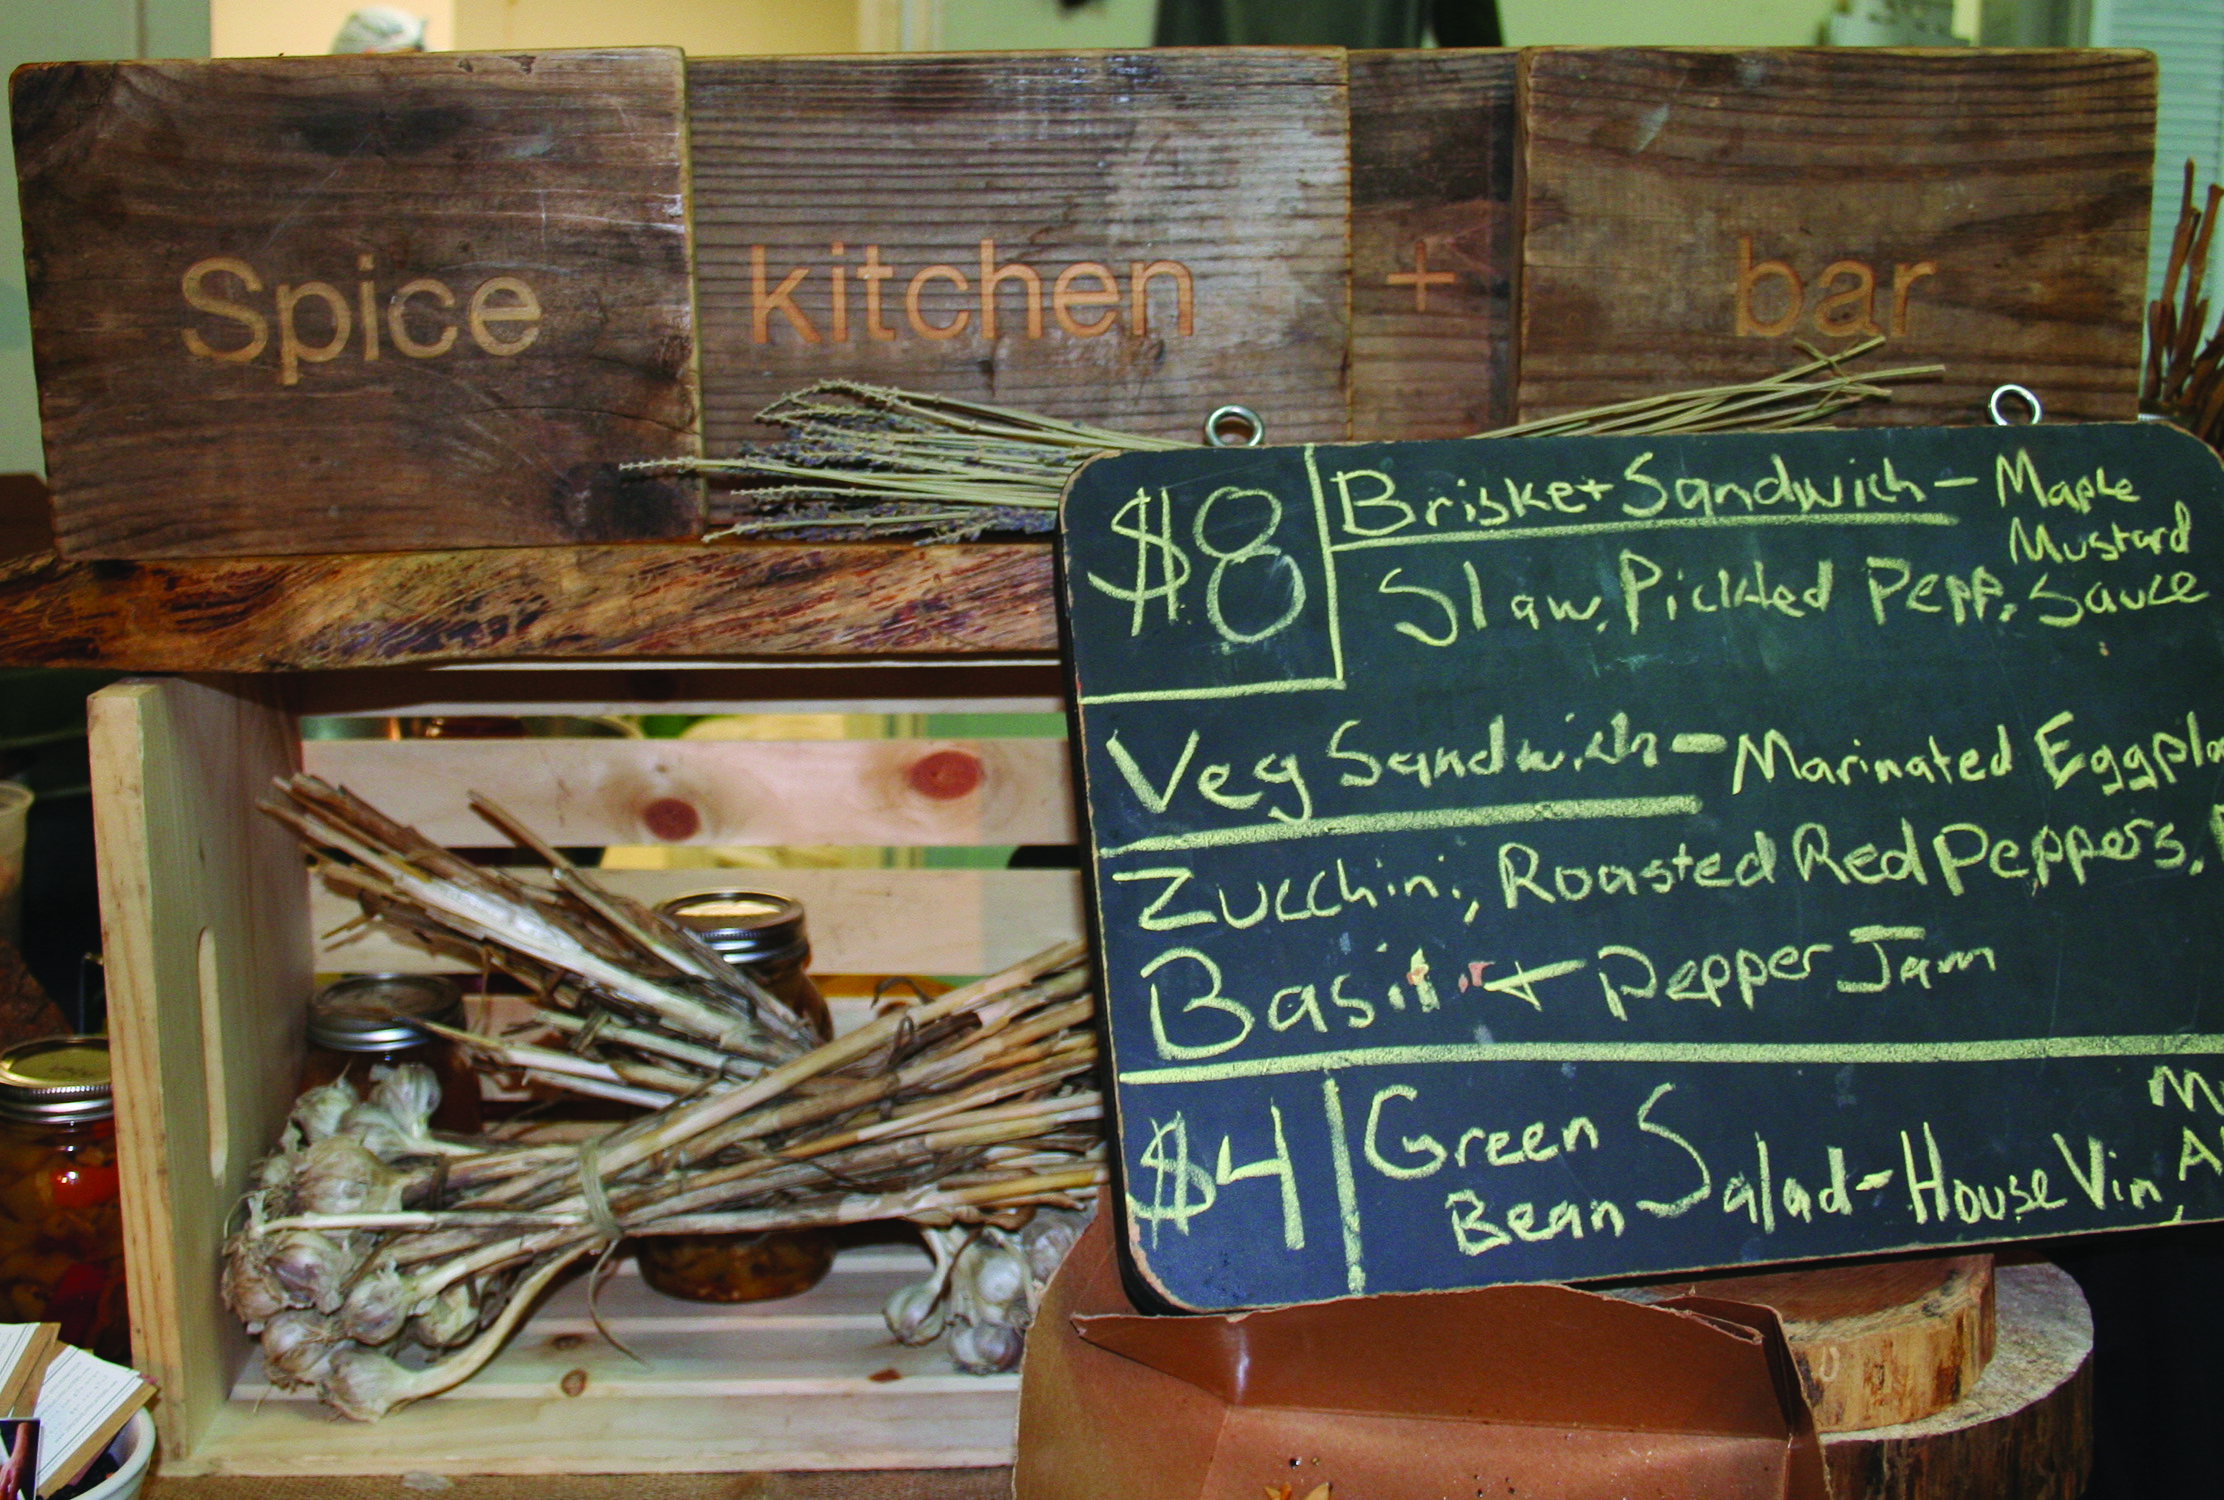 Spice kitchen + bar
$8
Brisket Sandwich - Maple
Mustard
Slaw, Pickled Pepp, Sauce
Veg Sandwich - Marinated
Zucchini, Roasted Red Peppers,
Basil + Pepper Jam
$4
Green
Bean Salad - House Vin,